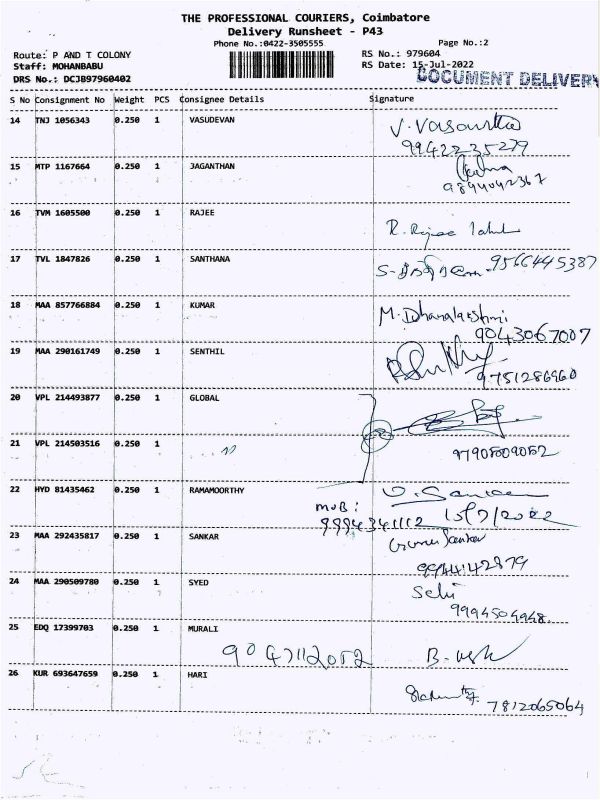 THE PROFESSIONAL COURIERS, Coimbatore
Delivery Runsheet - P43
Phone No.:0422-3505555
Page No.:2
Route: P AND T COLONY
RS No.: 979604
Staff: MOHANBABU
RS Date: 15-Jul-2022
DRS No.: DCJB97960402
DOCUMENT DELIVERY
S No Consignment No Weight PCS Consignee Details Signature
14 TNJ 1056343 0.250 1 VASUDEVAN
99422 35279
15 MTP 1167664 0.250 1 JAGANTHAN
9894042367
16 TVM 1605500 0.250 1 RAJEE
R. Rajee
17 TVL 1847826 0.250 1 SANTHANA
9566445387
18 MAA 857766884 0.250 1 KUMAR
M. Dhanalakshmi
9043067007
19 MAA 290161749 0.250 1 SENTHIL
9751286960
20 VPL 214493877 0.250 1 GLOBAL
21 VPL 214503516 0.250 1
9790509052
22 HYD 81435462 0.250 1 RAMAMOORTHY
MOB:
9994341112 15/7/2022
23 MAA 292435817 0.250 1 SANKAR
9944142879
24 MAA 290509780 0.250 1 SYED
9994504948
25 EDQ 17399703 0.250 1 MURALI
9047112052
26 KUR 693647659 0.250 1 HARI
7812065064